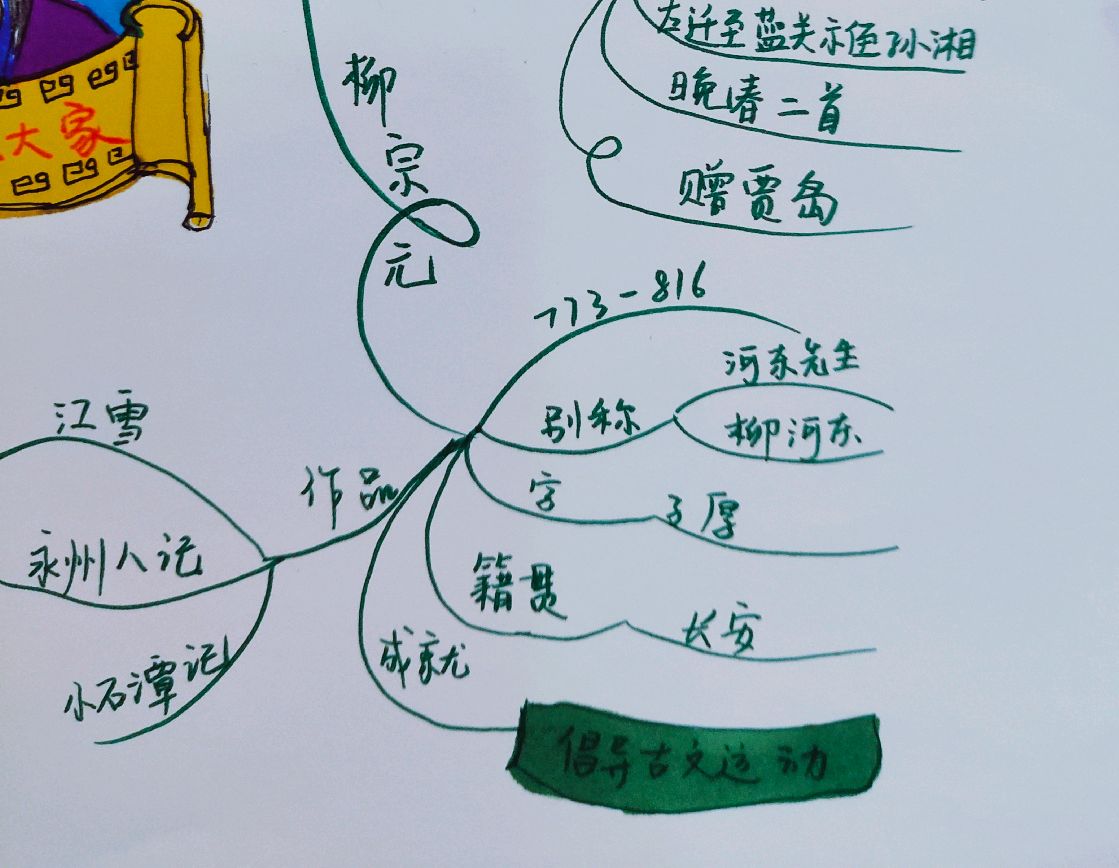 大家
左迁至蓝关示侄孙湘
晚春二首
赠贾岛
柳宗元
773-816
别称
河东先生
柳河东
字
子厚
籍贯
长安
成就
倡导古文运动
作品
江雪
永州八记
小石潭记